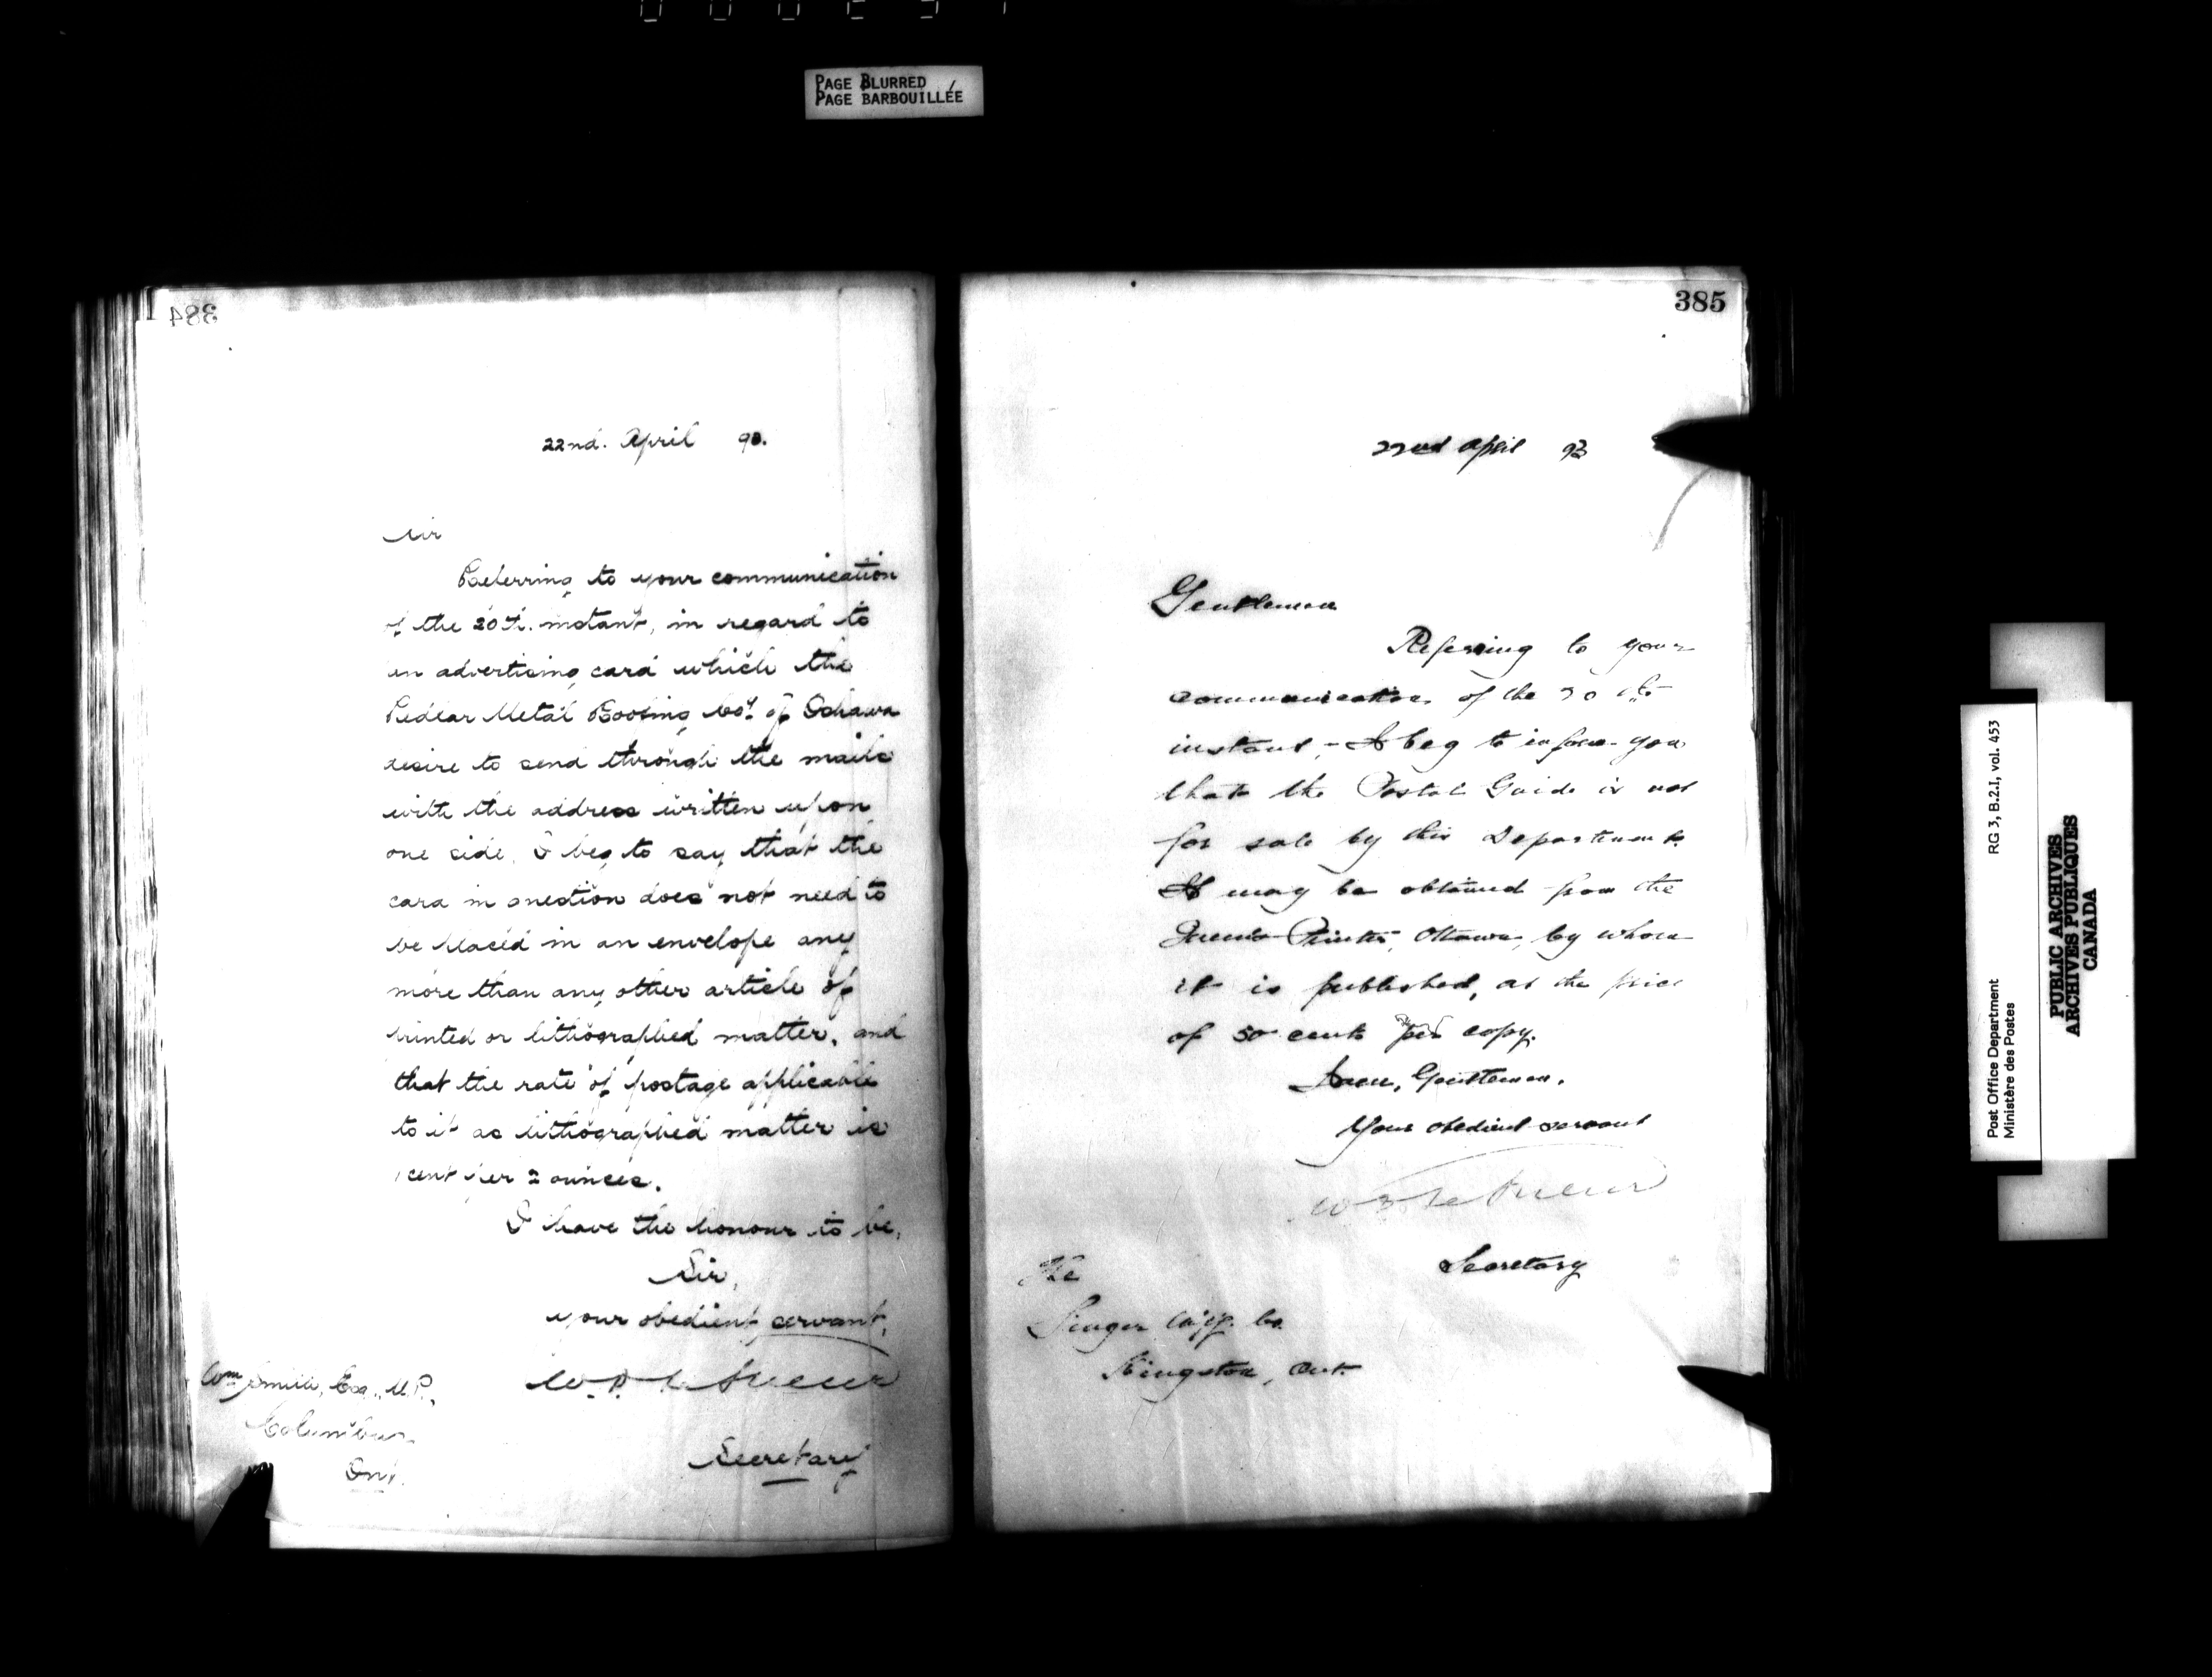 PAGE BLURRED
PAGE BARBOUILLÉE
384
22nd. April 93.
Sir
Referring to your communication
of the 20th. instant, in regard to
an advertising card which the
Pedlar Metal Roofing Coy. of Oshawa
desire to send through the mails
with the address written upon
one side, I beg to say that the
card in question does not need to
be placed in an envelope any
more than any other article of
printed or lithographed matter, and
that the rate of postage applicable
to it as lithographed matter is
1 cent per 2 ounces.
I have the honour to be,
Sir,
your obedient servant,
W. D. Le Sueur
Secretary
Wm Smith, Esq., M.P.,
Columbus
Ont.
385
22nd April 93
Gentlemen
Referring to your
communication of the 20th
instant, - I beg to inform you
that the Postal Guide is not
for sale by this Department.
It may be obtained from the
Queen's Printer, Ottawa, by whom
it is published, at the price
of 50 cents per copy.
I am, Gentlemen,
Your obedient servant
W D Le Sueur
Secretary
The
Singer Co.
Kingston, Ont.
RG 3, B.2.I, vol. 453
Post Office Department
Ministère des Postes
PUBLIC ARCHIVES
ARCHIVES PUBLIQUES
CANADA